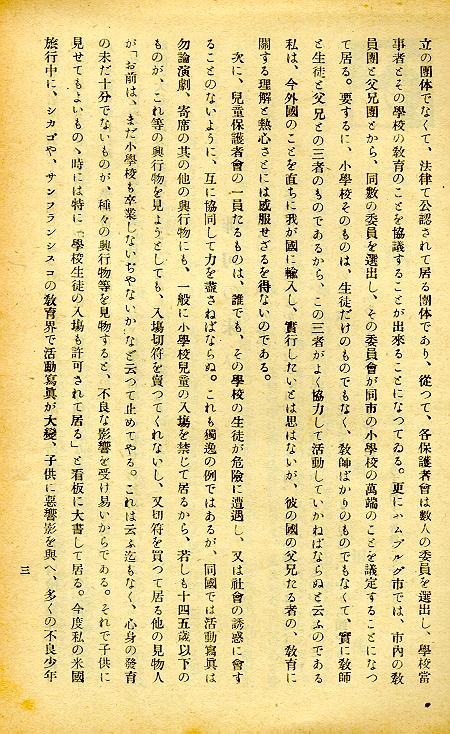 立の團体でなくて、法律で公認されて居る團体であり、從つて、各保護者會は數人の委員を選出し、學校當
事者とその學校の敎育のことを協議することが出來ることになつてゐる。更にハムブルグ市では、市內の敎
員團と父兄團とから、同數の委員を選出し、その委員會が同市の小學校の萬端のことを議定することになつ
て居る。要するに、小學校そのものは、生徒だけのものでもなく、敎師ばかりのものでもなくて、實に敎師
と生徒と父兄との三者のものであるから、この三者がよく協力して活動していかねばならぬと云ふのである
私は、今外國のことを直ちに我が國に輸入し、實行したいとは思はないが、彼の國の父兄たる者の、敎育に
關する理解と熱心さとには感服せざるを得ないのである。
次に、兒童保護者會の一員たるものは、誰でも、その學校の生徒が危險に遭遇し、又は社會の誘惑に會す
ることのないように、互に協同して力を盡さねばならぬ。これも獨逸の例ではあるが、同國では活動寫眞は
勿論演劇、寄席の其の他の興行物にも、一般に小學校兒童の入場を禁じて居るから、若しも十四五歲以下の
ものが、これ等の興行物を見ようとしても、入場切符を賣つてくれないし、又切符を買つて居る他の見物人
が「お前は、まだ小學校も卒業しないぢやないか」など云つて止めてやる。これは云ふ迄もなく、心身の發育
の未だ十分でないものが、種々の興行物等を見物すると、不良な影響を受け易いからである。それで子供に
見せてもよいもの、時には特に「學校生徒の入場も許可されて居る」と看板に大書して居る。今度私の米國
旅行中に、シカゴや、サンフランシスコの敎育界で活動寫眞が大變、子供に惡響影を與へ、多くの不良少年
三